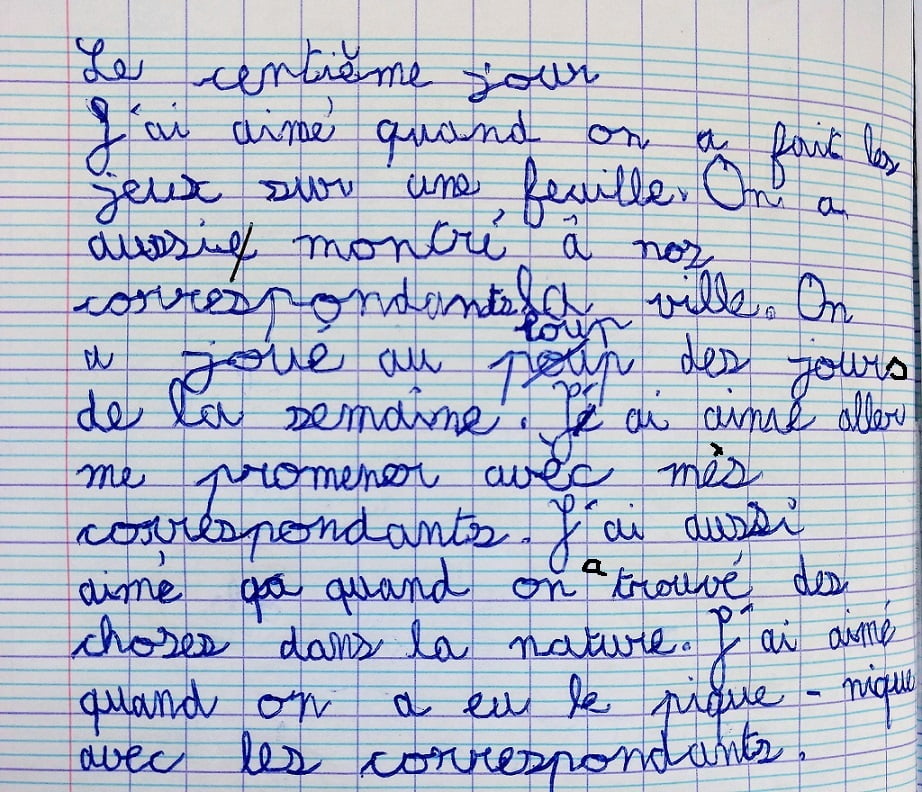 Le centième jour
J'ai aimé quand on a fait les
jeux sur une feuille. On a
aussi montré à nos
correspondants la ville. On
a joué au loup des jours
de la semaine. J'ai aimé aller
me promener avèc mès
corréspondants. J'ai aussi
aimé quand on a trouvé des
choses dans la nature. J'ai aimé
quand on a eu le pique-nique
avec les correspondants.